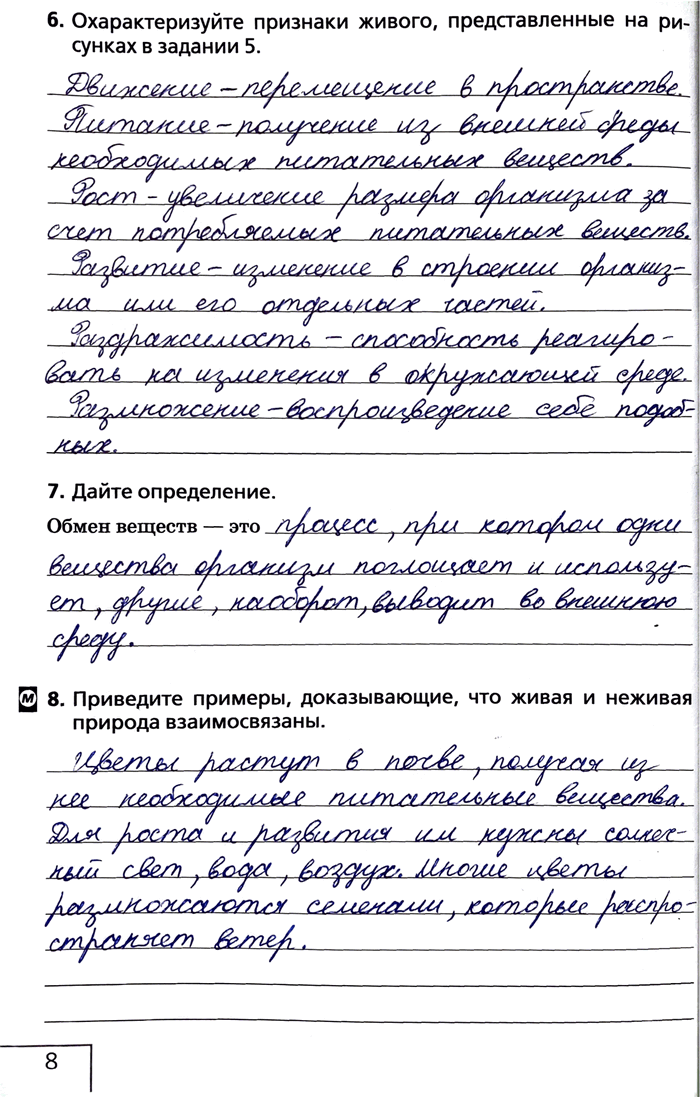 6. Охарактеризуйте признаки живого, представленные на ри-
сунках в задании 5.
Движение – перемещение в пространстве.
Питание – получение из внешней среды
необходимых питательных веществ.
Рост – увеличение размера организма за
счет потребляемых питательных веществ.
Развитие – изменение в строении организ-
ма или его отдельных частей.
Раздражимость – способность реагиро-
вать на изменения в окружающей среде.
Размножение – воспроизведение себе подоб-
ных.
7. Дайте определение.
Обмен веществ — это процесс, при котором одни
вещества организм поглощает и использу-
ет, другие, наоборот, выводит во внешнюю
среду.
М 8. Приведите примеры, доказывающие, что живая и неживая
природа взаимосвязаны.
Цветы растут в почве, получая из
нее необходимые питательные вещества.
Для роста и развития им нужны солнеч-
ный свет, вода, воздух. Многие цветы
размножаются семенами, которые распро-
страняет ветер.
8